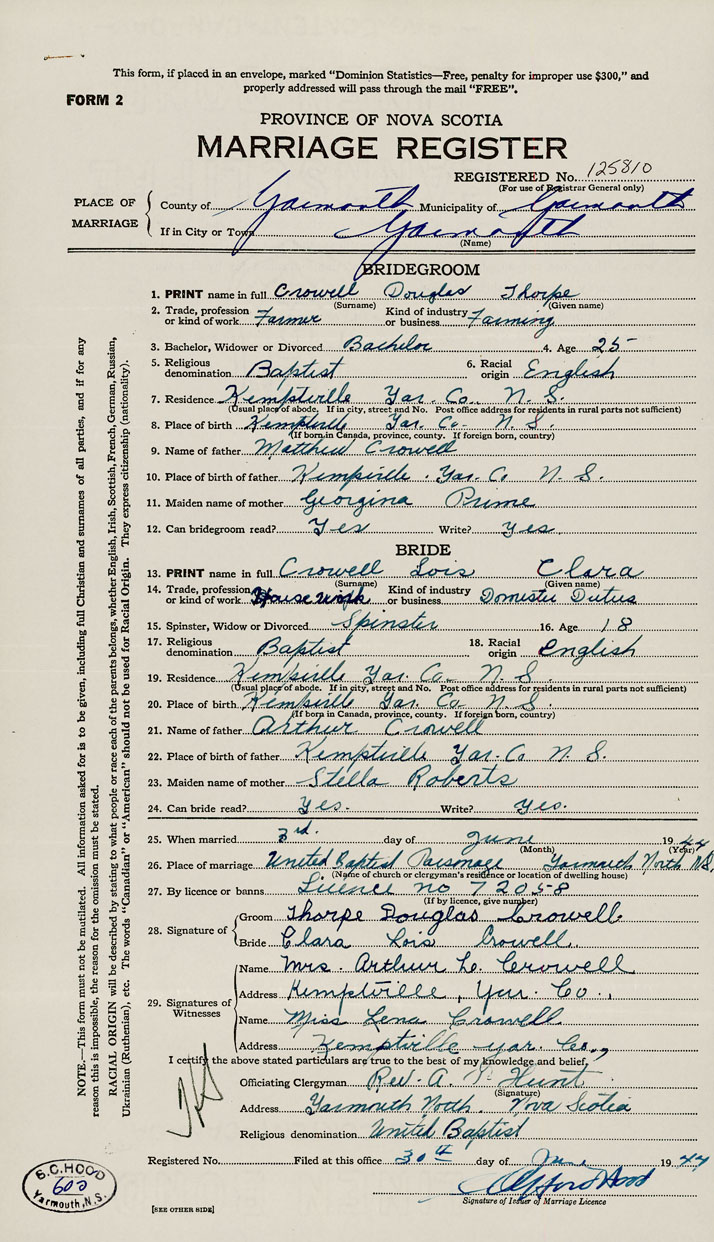 This form, if placed in an envelope, marked "Dominion Statistics—Free, penalty for improper use $300," and
properly addressed will pass through the mail "FREE".
FORM 2
PROVINCE OF NOVA SCOTIA
MARRIAGE REGISTER
REGISTERED No. 125810
(For use of Registrar General only)
PLACE OF MARRIAGE
County of Yarmouth Municipality of Yarmouth
If in City or Town Yarmouth
(Name)
BRIDEGROOM
1. PRINT name in full Crowell Douglas Thorpe
(Surname) (Given name)
2. Trade, profession or kind of work Farmer Kind of industry or business Farming
3. Bachelor, Widower or Divorced Bachelor 4. Age 25
5. Religious denomination Baptist 6. Racial origin English
7. Residence Kemptville Yar. Co. N. S.
(Usual place of abode. If in city, street and No. Post office address for residents in rural parts not sufficient)
8. Place of birth Kemptville Yar. Co. N. S.
(If born in Canada, province, county. If foreign born, country)
9. Name of father Matthew Crowell
10. Place of birth of father Kemptville Yar. Co N. S.
11. Maiden name of mother Georgina Prime
12. Can bridegroom read? Yes Write? Yes
BRIDE
13. PRINT name in full Crowell Lois Clara
(Surname) (Given name)
14. Trade, profession or kind of work House work Kind of industry or business Domestic Duties
15. Spinster, Widow or Divorced Spinster 16. Age 18
17. Religious denomination Baptist 18. Racial origin English
19. Residence Kemptville Yar. Co. N. S.
(Usual place of abode. If in city, street and No. Post office address for residents in rural parts not sufficient)
20. Place of birth Kemptville Yar. Co. N. S.
(If born in Canada, province, county. If foreign born, country)
21. Name of father Arthur Crowell
22. Place of birth of father Kemptville Yar. Co N. S.
23. Maiden name of mother Stella Roberts
24. Can bride read? Yes. Write? Yes.
25. When married 3rd. day of June 1944
(Month) (Year)
26. Place of marriage United Baptist Parsonage Yarmouth North N.S.
(Name of church or clergyman's residence or location of dwelling house)
27. By licence or banns Licence no 72058
(If by licence, give number)
28. Signature of
Groom Thorpe Douglas Crowell
Bride Clara Lois Crowell
29. Signatures of Witnesses
Name Mrs. Arthur L. Crowell
Address Kemptville, Yar. Co.,
Name Miss Lena Crowell
Address Kemptville Yar. Co.,
I certify the above stated particulars are true to the best of my knowledge and belief,
Officiating Clergyman Rev. A. Hunt
(Signature)
Address Yarmouth North. Nova Scotia
Religious denomination United Baptist
Registered No. Filed at this office 30th day of June 1944
Signature of Issuer of Marriage Licence
[SEE OTHER SIDE]
S.C. HOOD
602
Yarmouth, N.S.
NOTE.—This form must not be mutilated. All information asked for is to be given, including full Christian and surnames of all parties, and if for any
reason this is impossible, the reason for the omission must be stated.
RACIAL ORIGIN will be described by stating to what people or race each of the parents belongs, whether English, Irish, Scottish, French, German, Russian,
Ukrainian (Ruthenian), etc. The words "Canadian" or "American" should not be used for Racial Origin. They express citizenship (nationality).